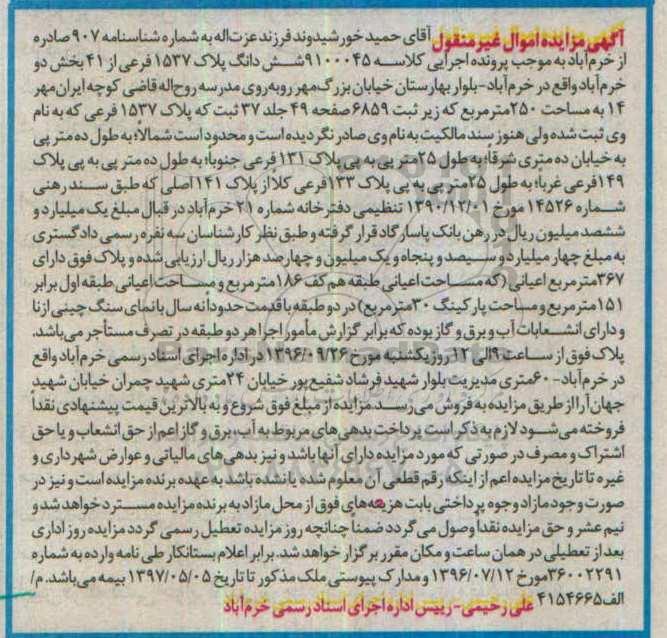 آگهی مزایده اموال غیرمنقول آقای حمید خورشیدوند فرزند عزت‌اله به شماره شناسنامه ۹۰۷ صادره
از خرم‌آباد به موجب پرونده اجرایی کلاسه ۹۱۰۰۰۴۵ شش دانگ پلاک ۱۵۳۷ فرعی از ۴۱ بخش دو
خرم‌آباد واقع در خرم‌آباد-بلوار بهارستان خیابان بزرگمهر روبه‌روی مدرسه روح‌اله قاضی کوچه ایران‌مهر
۱۴ به مساحت ۲۵۰ مترمربع که زیر ثبت ۶۸۵۹ صفحه ۴۹ جلد ۳۷ ثبت که پلاک ۱۵۳۷ فرعی که به نام
وی ثبت شده ولی هنوز سند مالکیت به نام وی صادر نگردیده است و محدود است شمالا؛ به طول ده متر پی
به خیابان ده متری شرقا؛ به طول ۲۵ متر پی به پی پلاک ۱۳۱ فرعی جنوبا؛ به طول ده متر پی به پی پلاک
۱۴۹ فرعی غربا؛ به طول ۲۵ متر پی به پی پلاک ۱۳۳ فرعی کلا از پلاک ۱۴۱ اصلی که طبق سند رهنی
شماره ۱۴۵۲۶ مورخ ۱۳۹۰/۱۲/۰۱ تنظیمی دفترخانه شماره ۲۱ خرم‌آباد در قبال مبلغ یک میلیارد و
ششصد میلیون ریال در رهن بانک پاسارگاد قرار گرفته و طبق نظر کارشناسان سه نفره رسمی دادگستری
به مبلغ چهار میلیارد و سیصد و پنجاه و یک میلیون و چهارصد هزار ریال ارزیابی شده و پلاک فوق دارای
۳۶۷ مترمربع اعیانی (که مساحت اعیانی طبقه هم کف ۱۸۶ مترمربع و مساحت اعیانی طبقه اول برابر
۱۵۱ مترمربع و مساحت پارکینگ ۳۰ مترمربع) در دو طبقه با قدمت حدودا نه سال با نمای سنگ چینی ازنا
و دارای انشعابات آب و برق و گاز بوده که برابر گزارش مأمور اجرا هر دو طبقه در تصرف مستأجر می‌باشد.
پلاک فوق از ساعت ۹ الی ۱۲ روز یکشنبه مورخ ۱۳۹۶/۰۹/۲۶ در اداره اجرای اسناد رسمی خرم‌آباد واقع
در خرم‌آباد- ۶۰ متری مدیریت بلوار شهید فرشاد شفیع‌پور خیابان ۲۴ متری شهید چمران خیابان شهید
جهان آرا از طریق مزایده به فروش می‌رسد. مزایده از مبلغ فوق شروع و به بالاترین قیمت پیشنهادی نقدا
فروخته می‌شود لازم به ذکر است پرداخت بدهی‌های مربوط به آب، برق و گاز اعم از حق انشعاب و یا حق
اشتراک و مصرف در صورتی که مورد مزایده دارای آنها باشد و نیز بدهی‌های مالیاتی و عوارض شهرداری و
غیره تا تاریخ مزایده اعم از اینکه رقم قطعی آن معلوم شده یا نشده باشد به عهده برنده مزایده است و نیز در
صورت وجود مازاد وجوه پرداختی بابت هزینه‌های فوق از محل مازاد به برنده مزایده مسترد خواهد شد و
نیم عشر و حق مزایده نقدا وصول می‌گردد ضمنا چنانچه روز مزایده تعطیل رسمی گردد مزایده روز اداری
بعد از تعطیلی در همان ساعت و مکان مقرر برگزار خواهد شد. برابر اعلام بستانکار طی نامه وارده به شماره
۳۶۰۰۲۲۹۱ مورخ ۱۳۹۶/۰۷/۱۲ و مدارک پیوستی ملک مذکور تا تاریخ ۱۳۹۷/۰۵/۰۵ بیمه می‌باشد. م/
الف ۴۱۵۴۶۶۵ علی رحیمی- رییس اداره اجرای اسناد رسمی خرم‌آباد